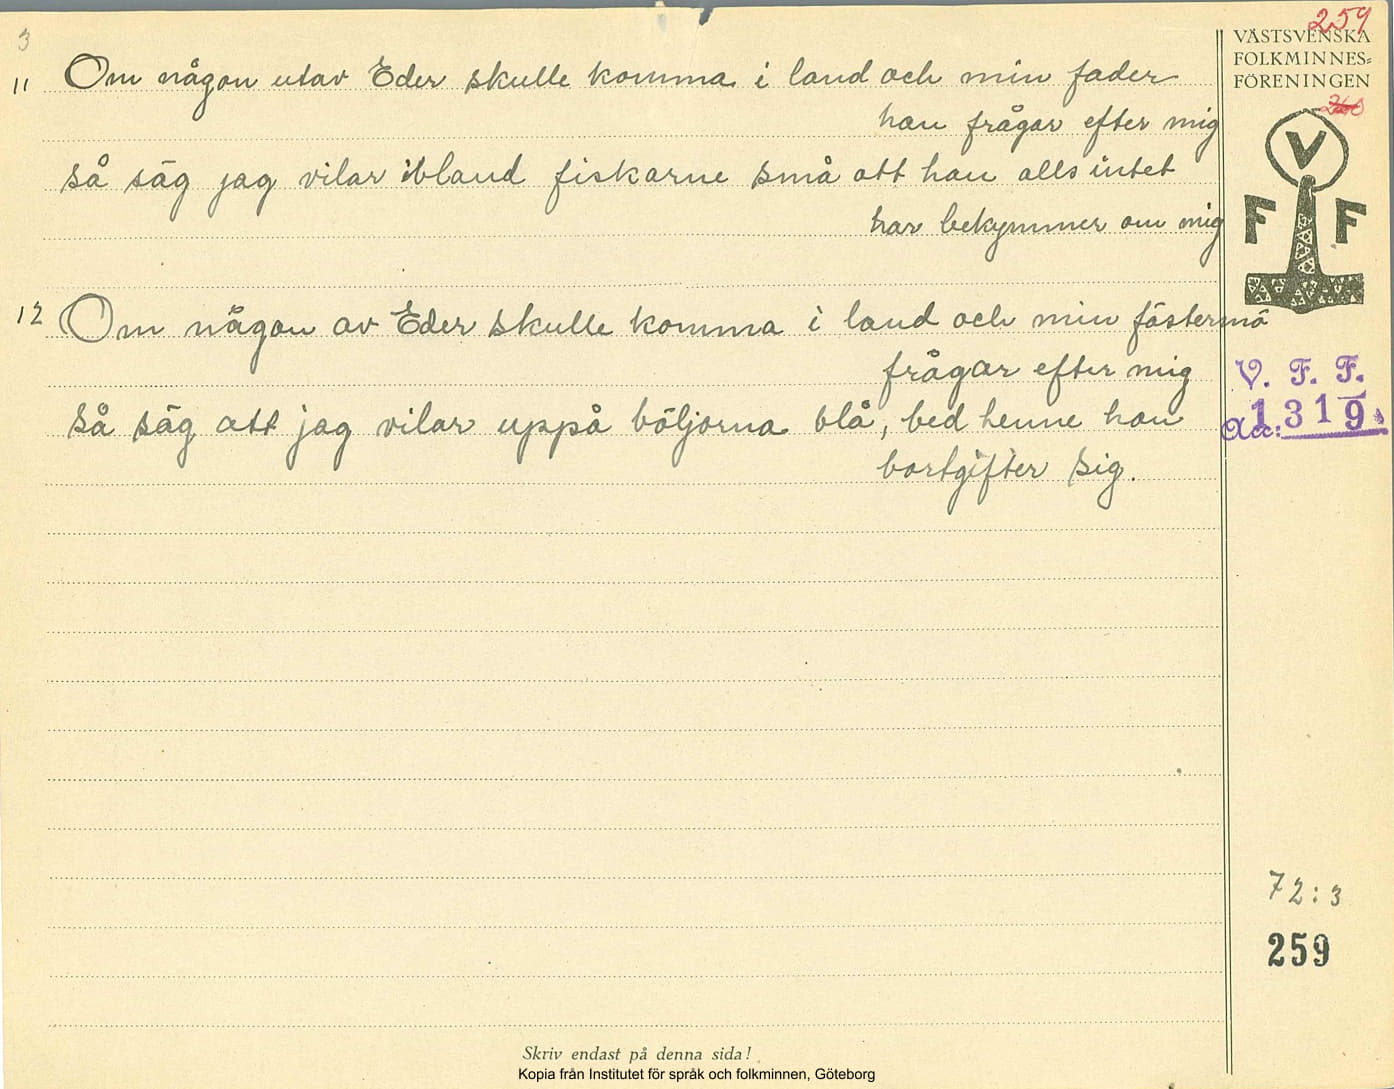 3
259
VÄSTSVENSKA
FOLKMINNES=
FÖRENINGEN
260
V
F F
11 Om någon utav Eder skulle komma i land och min fader
han frågar efter mig
så säg jag vilar ibland fiskarne små att han alls intet
har bekymmer om mig
12 Om någon av Eder skulle komma i land och min fästermö
frågar efter mig
så säg att jag vilar uppå böljorna blå, bed henne hon
bortgifter sig.
V. F. F.
Acc: 1319
72:3
259
Skriv endast på denna sida!
Kopia från Institutet för språk och folkminnen, Göteborg